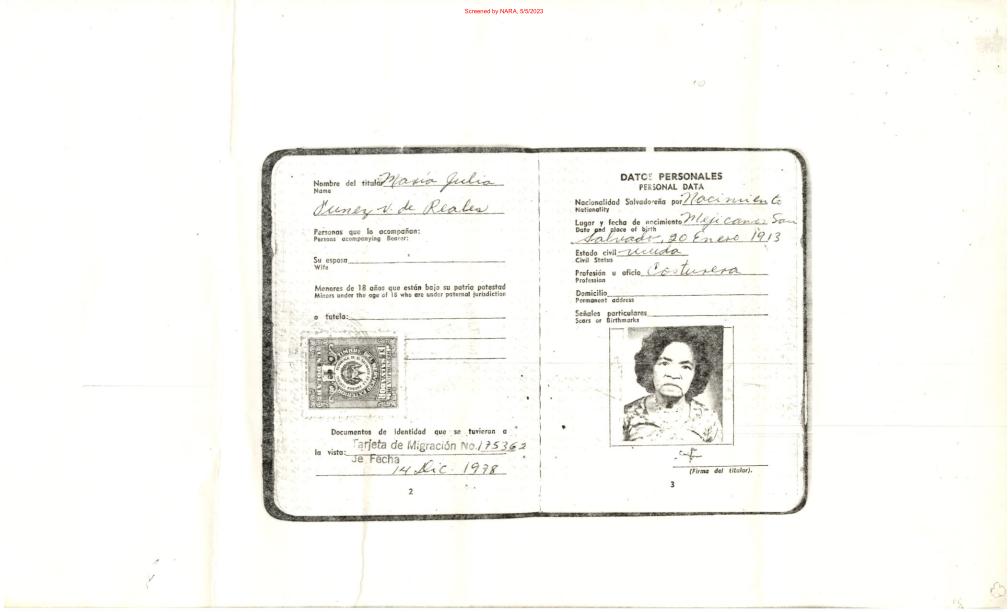 Screened by NARA, 5/5/2023
Nombre del titular Maria Julia
Name
Funez v. de Reales
Personas que lo acompañan:
Persons acompanying Bearer:
Su esposa
Wife
Menores de 18 años que están bajo su patria potestad
Minors under the age of 18 who are under paternal jurisdiction
o tutela:
TIMBRE
Documentos de identidad que se tuvieron a
Tarjeta de Migración No. 175362
la vista:
de Fecha
14 Dic. 1978
2
DATOS PERSONALES
PERSONAL DATA
Nacionalidad Salvadoreña por Nacimiento
Nationality
Lugar y fecha de nacimiento Mejicanos San
Date and place of birth
Salvador, 20 Enero 1913
Estado civil viuda
Civil Status
Profesión u oficio Costurera
Profession
Domicilio
Permanent address
Señales particulares
Scars or Birthmarks
(Firma del titular).
3